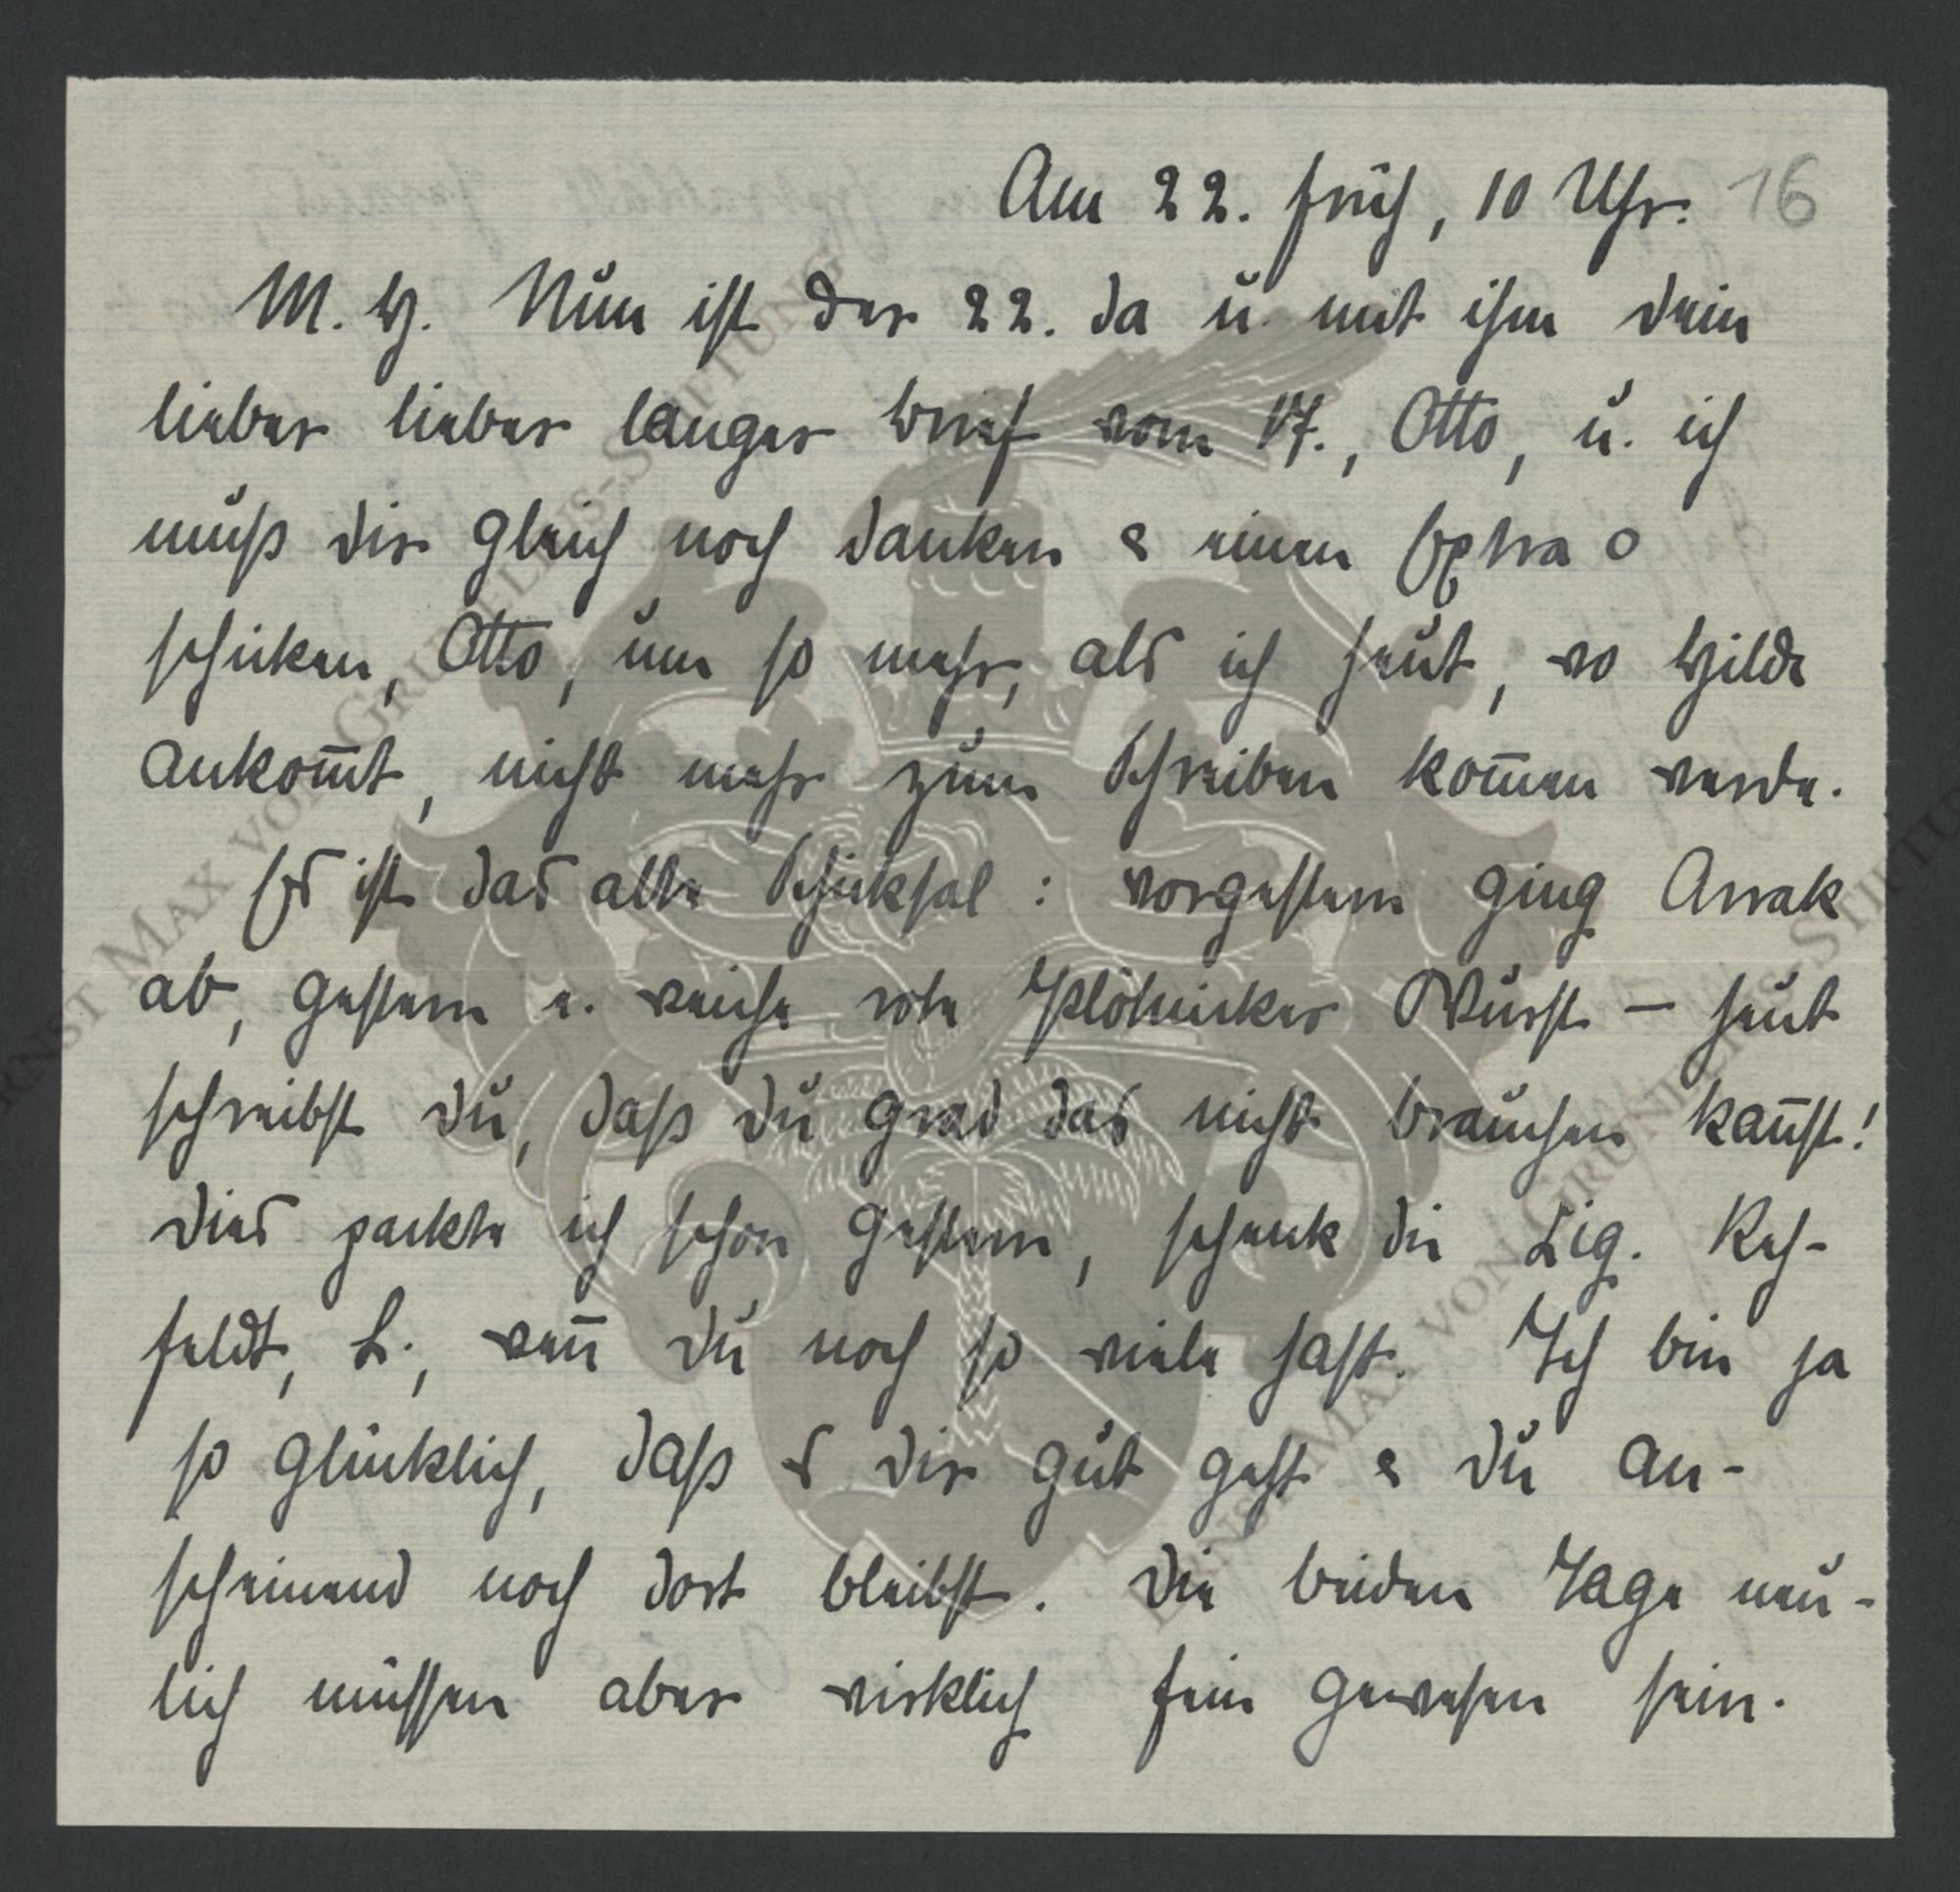 Am 22. früh, 10 Uhr. 16
M. H. Nun ist der 22. da u. mit ihm dein
lieber lieber langer Brief vom 17., Otto, u. ich
muß dir gleich noch danken & einen Extra o
schicken, Otto, um so mehr, als ich heut, wo Hilde
ankom̅t, nicht mehr zum Schreiben kom̅en werde.
Es ist das alte Schicksal: vorgestern ging Arrak
ab, gestern e. weiche rote Wurst – heut
schreibst du, daß du grad das nicht brauchen kan̅st!
Dies packte ich schon gestern, schenk die Zig. Reh-
feldt, L., wen̅ du noch so viele hast. Ich bin ja
so glücklich, daß es dir gut geht & du an-
scheinend noch dort bleibst. Die beiden Tage neu-
lich müssen aber wirklich fein gewesen sein.
ERNST MAX VON GRUNELIUS-STIFTUNG
ERNST MAX VON GRUNELIUS-STIFTUNG